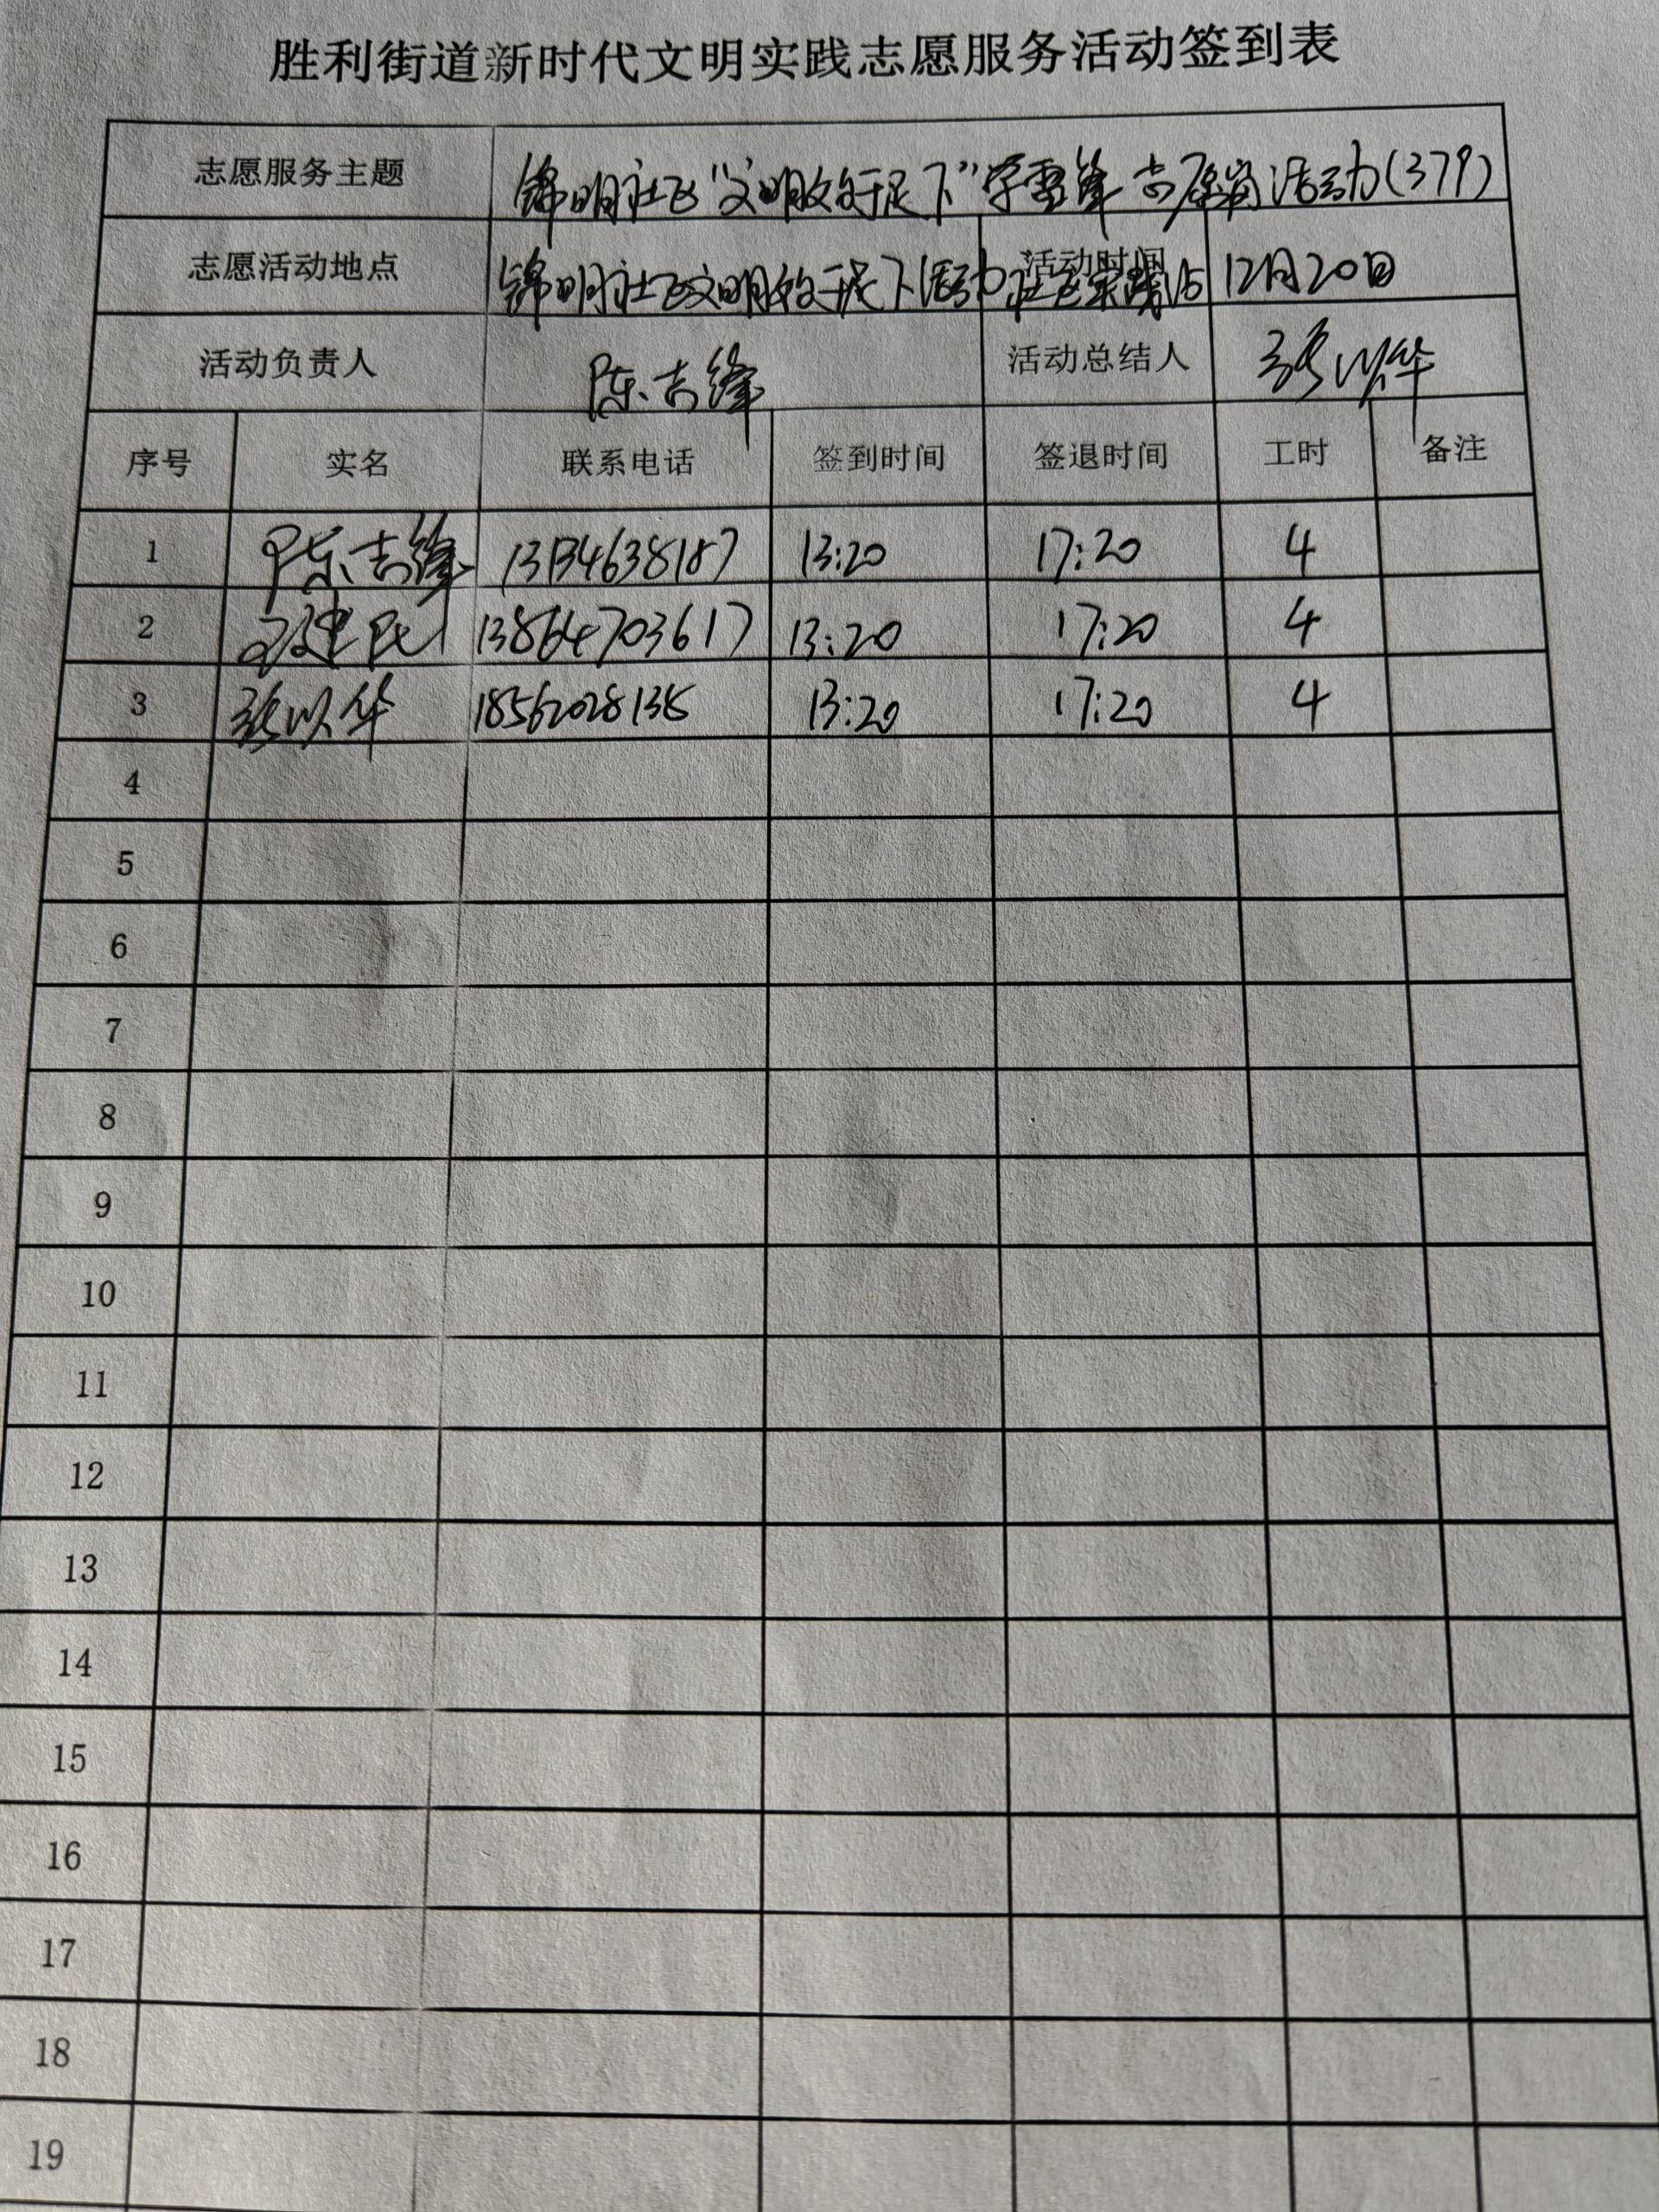 胜利街道新时代文明实践志愿服务活动签到表
志愿服务主题 锦明社区"文明放于足下"学雷锋志愿岗活动(379)
志愿活动地点 锦明社区文明放于足下活动社区实践站 活动时间 12月20日
活动负责人 陈吉锋 活动总结人 张以华
序号 实名 联系电话 签到时间 签退时间 工时 备注
1 陈吉锋 13:20 17:20 4
2 建民 13864703617 13:20 17:20 4
3 张以华 13:20 17:20 4
4
5
6
7
8
9
10
11
12
13
14
15
16
17
18
19